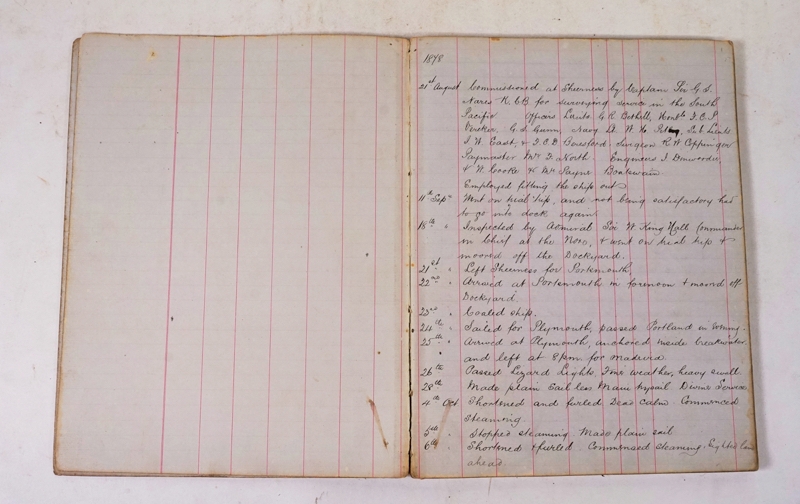 1878
21st August Commissioned at Sheerness by Captain Sir G. S.
Nares K.C.B. for surveying service in the South
Pacific Officers Lieuts. G. R. Bethell, Honble F. C. P.
Vereker, G. S. Gunn, Navg Lt. W. H. Sub Lieuts
J. W. East, & F. C. D. Beresford. Surgeon R. W. Coppinger
Paymaster Mr. J. North Engineers J. Dinwoodie,
& W. Cooke & Mr. Payne Boatswain.
Employed fitting the ship out
11th Sepr Went on trial trip, and not being satisfactory had
to go into dock again
18th " Inspected by Admiral Sir W King Hall Commander
in Chief at the Nore, & went on trial trip &
moored off the Dockyard.
21st " Left Sheerness for Portsmouth,
22nd " Arrived at Portsmouth in forenoon & moored off
Dockyard
23rd " Coaled ship.
24th " Sailed for Plymouth, passed Portland in evening.
25th " Arrived at Plymouth, anchored inside breakwater
" and left at 8 pm for Madeira
26th " Passed Lizard Lights, Fine weather, heavy swell
28th " Made plain sail less Main trysail Divine Service
4th Oct Shortened and furled Dead calm. Commenced
steaming
5th " Stopped steaming. Made plain sail
6th " Shortened & furled. Commenced steaming, Sighted land
ahead.